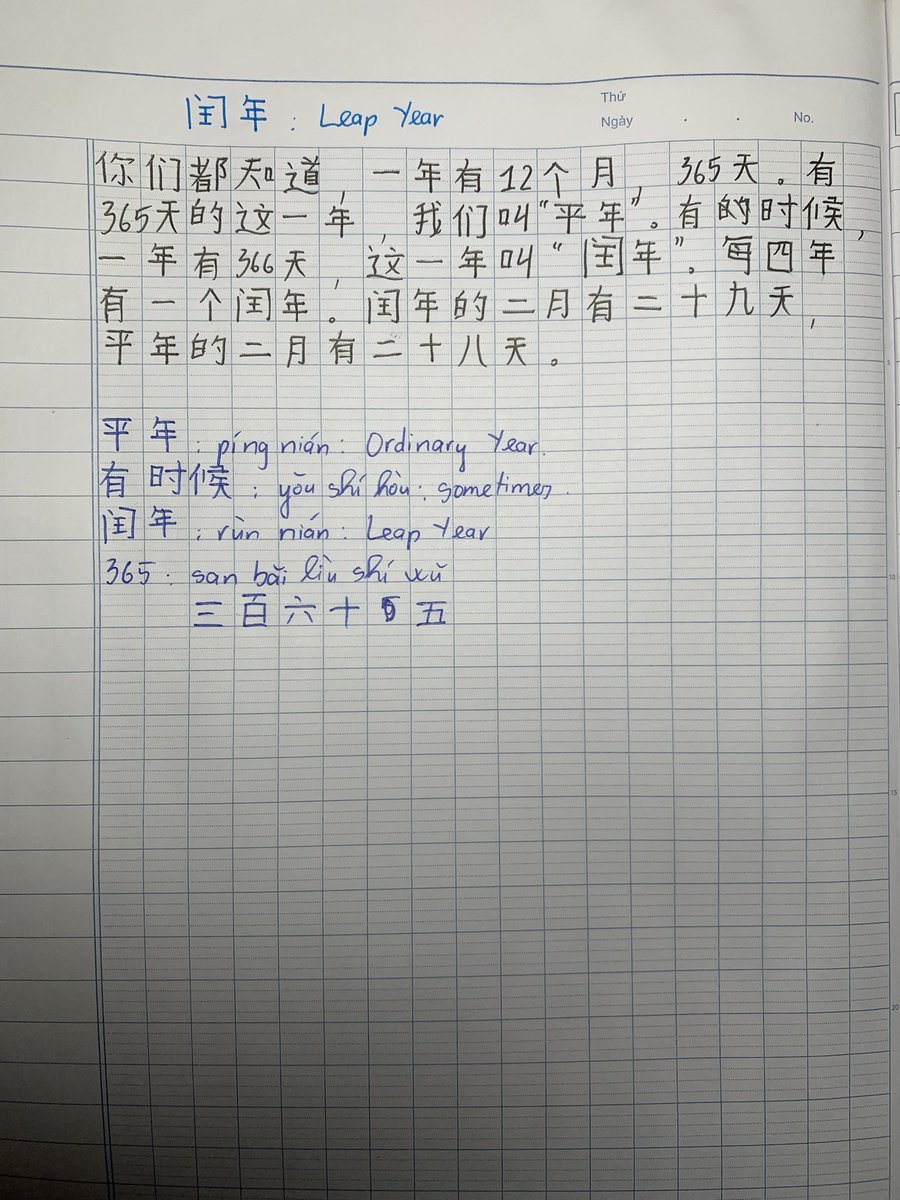 闰年 : Leap Year
Thứ
Ngày . . No.
你们都知道，一年有12个月，365天。有
365天的这一年，我们叫"平年"。有的时候，
一年有366天，这一年叫"闰年"。每四年
有一个闰年。闰年的二月有二十九天，
平年的二月有二十八天。
平年 : píng nián : Ordinary Year.
有时候 : yǒu shí hòu : sometimes.
闰年 : rùn nián : Leap Year
365 : san bǎi liù shí wǔ
三百六十五
5
10
15
20